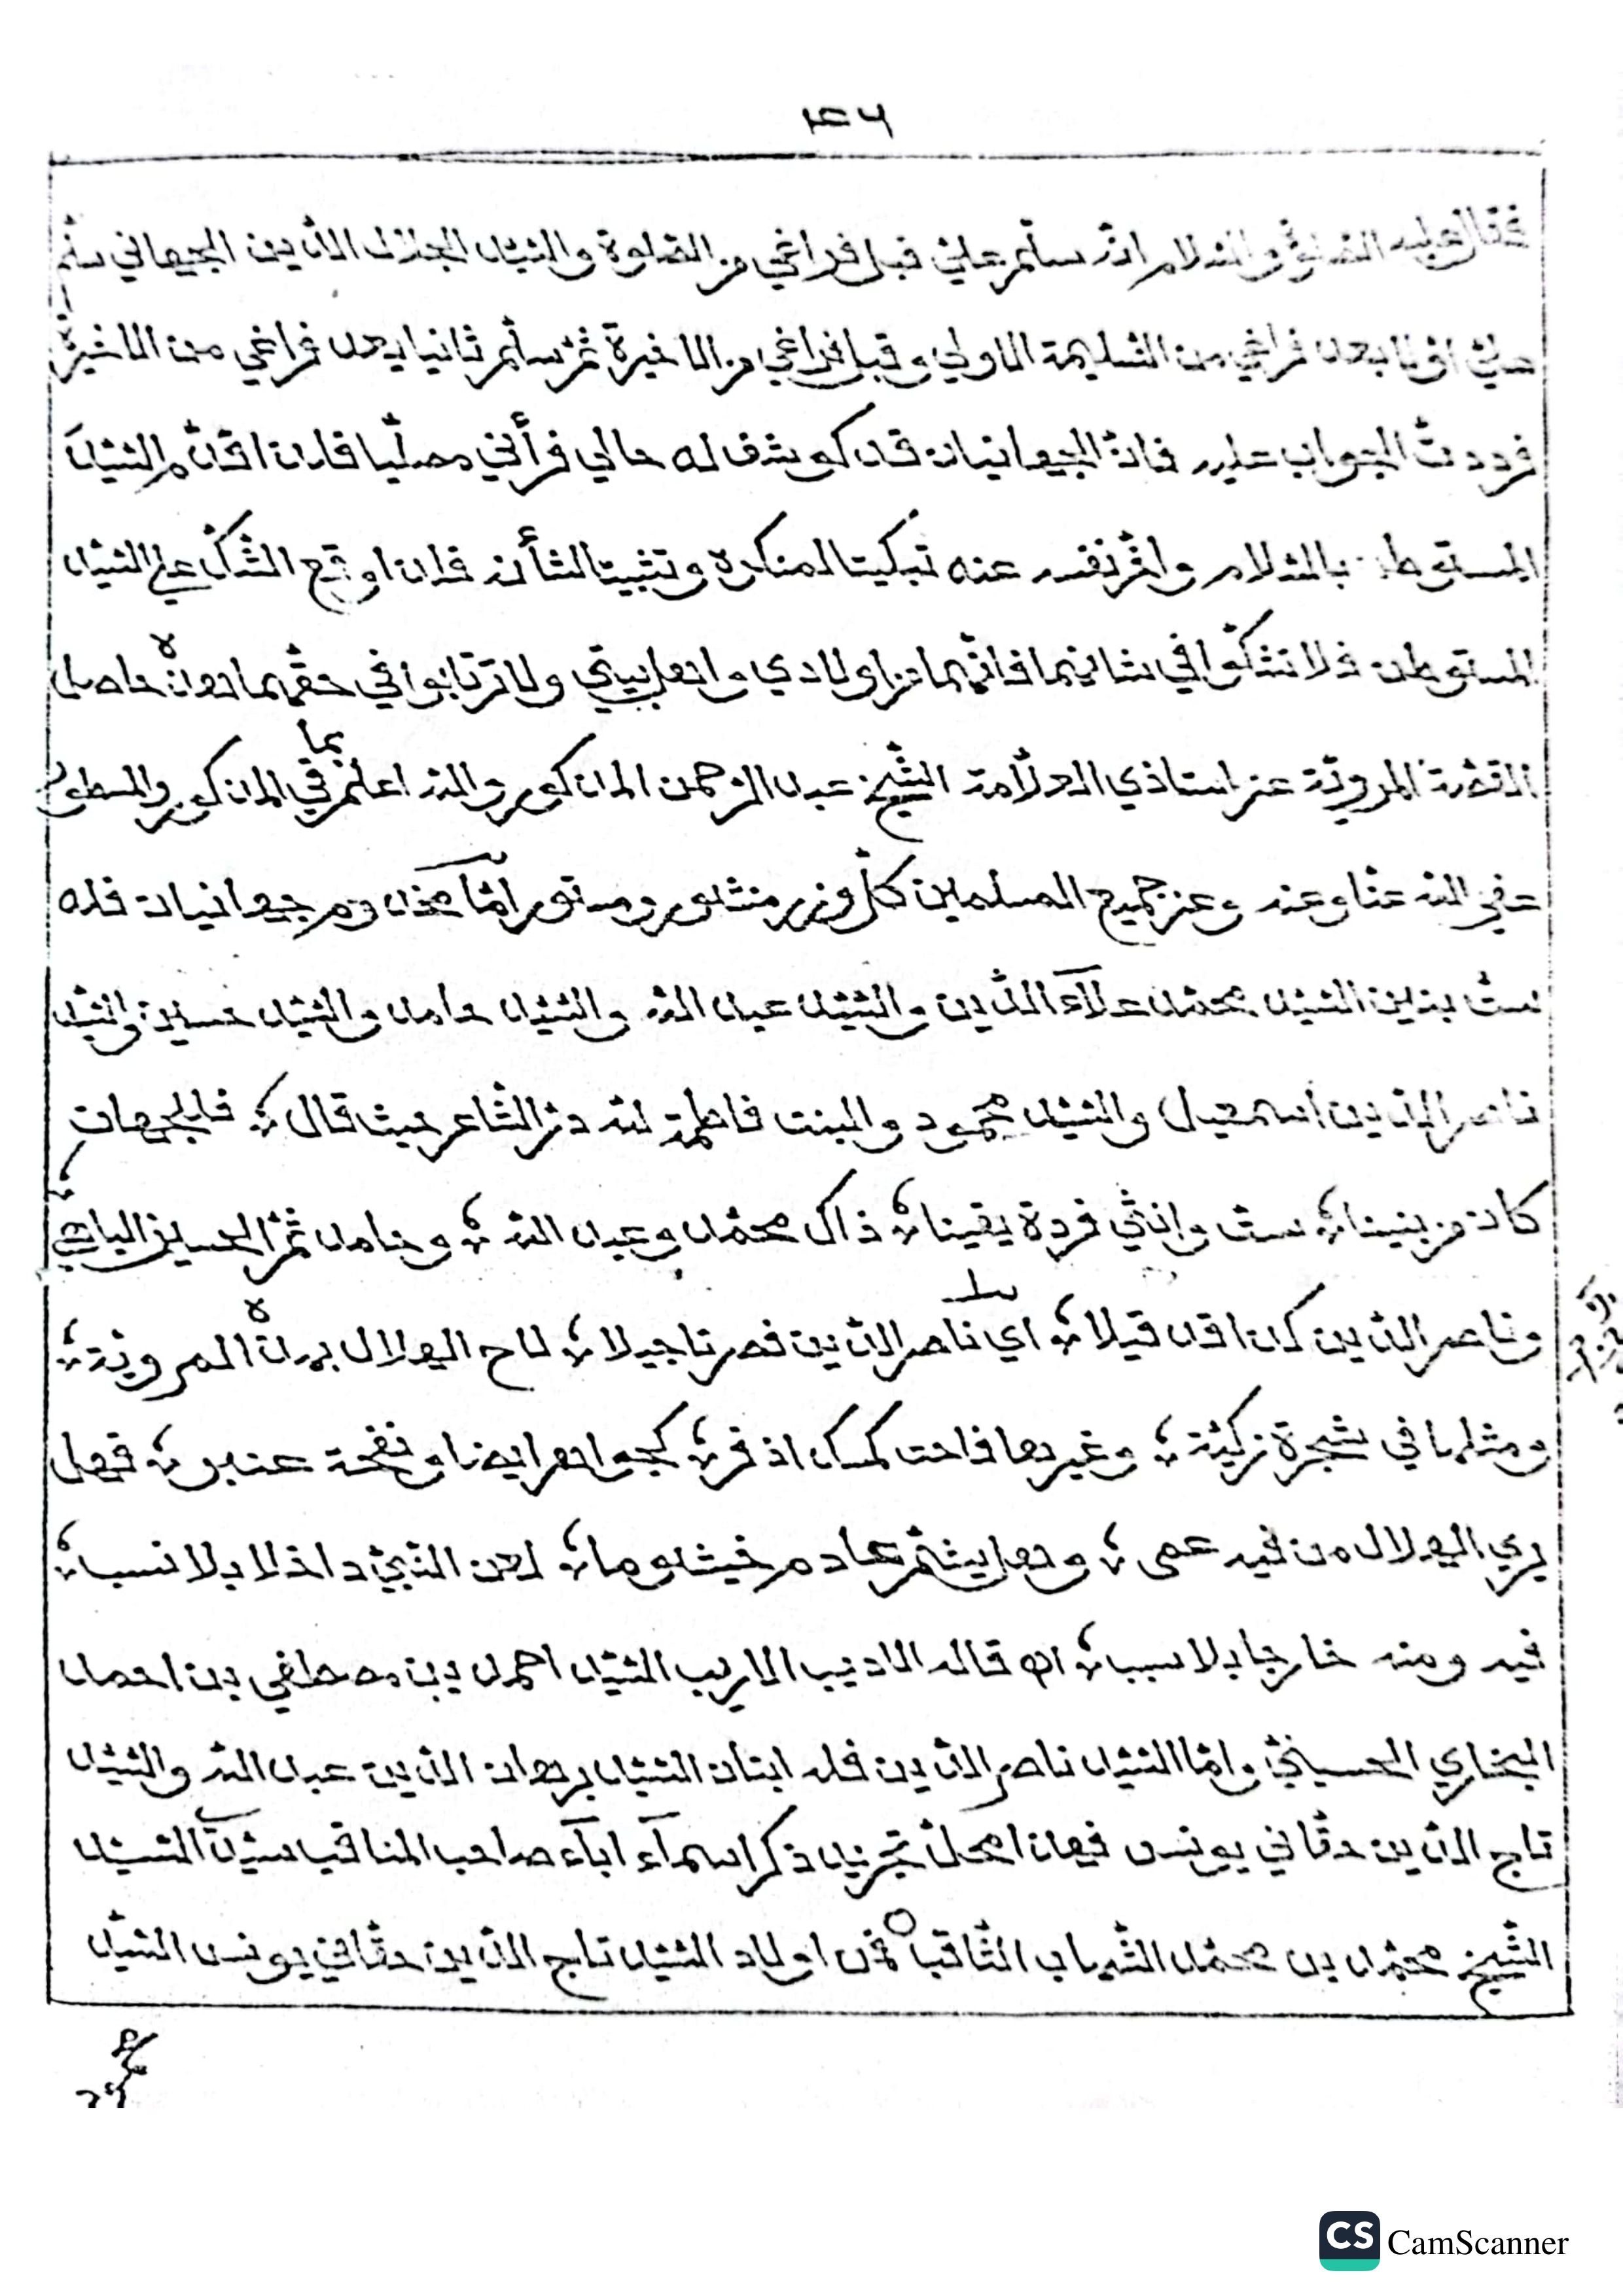 ١٤٦
فقال عليه الصلوة والسلام انّه سلّم عليّ قبل فراغي من الصّلوة والسّيّد الجلال الدّين الجيهاني سلّم
عليّ اوّلا بعد فراغي من التّسليمة الاولي وقبل فراغي من الاخيرة ثمّ سلّم ثانيا بعد فراغي من الاخيرة
فرددتّ الجواب عليه فانّ الجيهانيان قد كوشف له حالي فرأني مصلّيا فلهذا قدّم السّيّد
المستوطن بالسّلام وأخّر نفسه عنه تبكيتا لمنكره وتثبيتا لشأنه فلهذا وقع الشّكّ علي السّيّد
المستوطن فلا تشكّوا في شانهما فانّهما من اولادي واهل بيتي ولا ترتابوا في حقّهما هذه حاصل
القصّة المرويّة عن استاذي العلّامة الشّيخ عبد الرّحمن المذكور والله اعلم بما في المذكور والمسطور
عفي الله عنّا وعنه وعن جميع المسلمين كلّ وزر منشور ومستور امّا مخدوم جيهانيان فله
ستّ بنين السّيّد محمّد علآء الدّين والسّيّد عبد الله والسّيّد حامد والسّيّد حسين والسّيّد
ناصر الدّين اسمعيل والسّيّد محمود والبنت فاطمة لله درّ الشاعر حيث قال ؛ فالجهان
كان من بنينا ؛ ستّ وانثي فردة يقينا ؛ ذاك محمّد وعبد الله ؛ وحامد ثمّ الحسين الباهي ؛
وناصر الدّين كذا قد قيلا ؛ اي ناصر الدّين فصر تاجيلا ؛ لاح الهلال بهذه المرويّة ؛
ومثلها في شجرة زكيّة ؛ وغيرها فاحت كمسك اذفر ؛ كجواهر ايضا ونفحة عنبر ؛ فهل
يري الهلال من فيه عمى ؛ وهل يشمّ عادم خيشوما ؛ لعن النّبيّ داخلا بلا نسب ؛
فيه ومنه خارجا بلا سبب ؛ اه قاله الاديب الاريب السّيّد احمد بن مصطفي بن احمد
البخاري الحسينيّ وامّا السّيّد ناصر الدّين فله ابنان السّيّد برهان الدّين عبد الله والسّيّد
تاج الدّين حقّاني يونس فهذا محلّ تجريد ذكر اسمآء ابآء صاحب المناقب سيّدنا السّيّد
الشّيخ محمّد بن محمّد الشّهاب الثّاقب فمن اولاد السّيّد تاج الدّين حقّاني يونس السّيّد
CS CamScanner